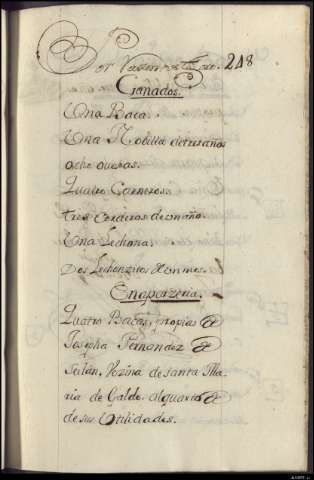 248
Ganados.
Una Baca.
Una Nobilla de tres años
ocho ovejas.
Quatro Carneros.
tres corderos de un año
Una Lechona.
Dos Lechonzitos de un mes.
En aparzeria.
Quatro Bacas, propias de
Josepha Fernandez de
Sulán, Vezina de santa Ma-
ria de Galdo, al quarto de
de sus Utilidades.